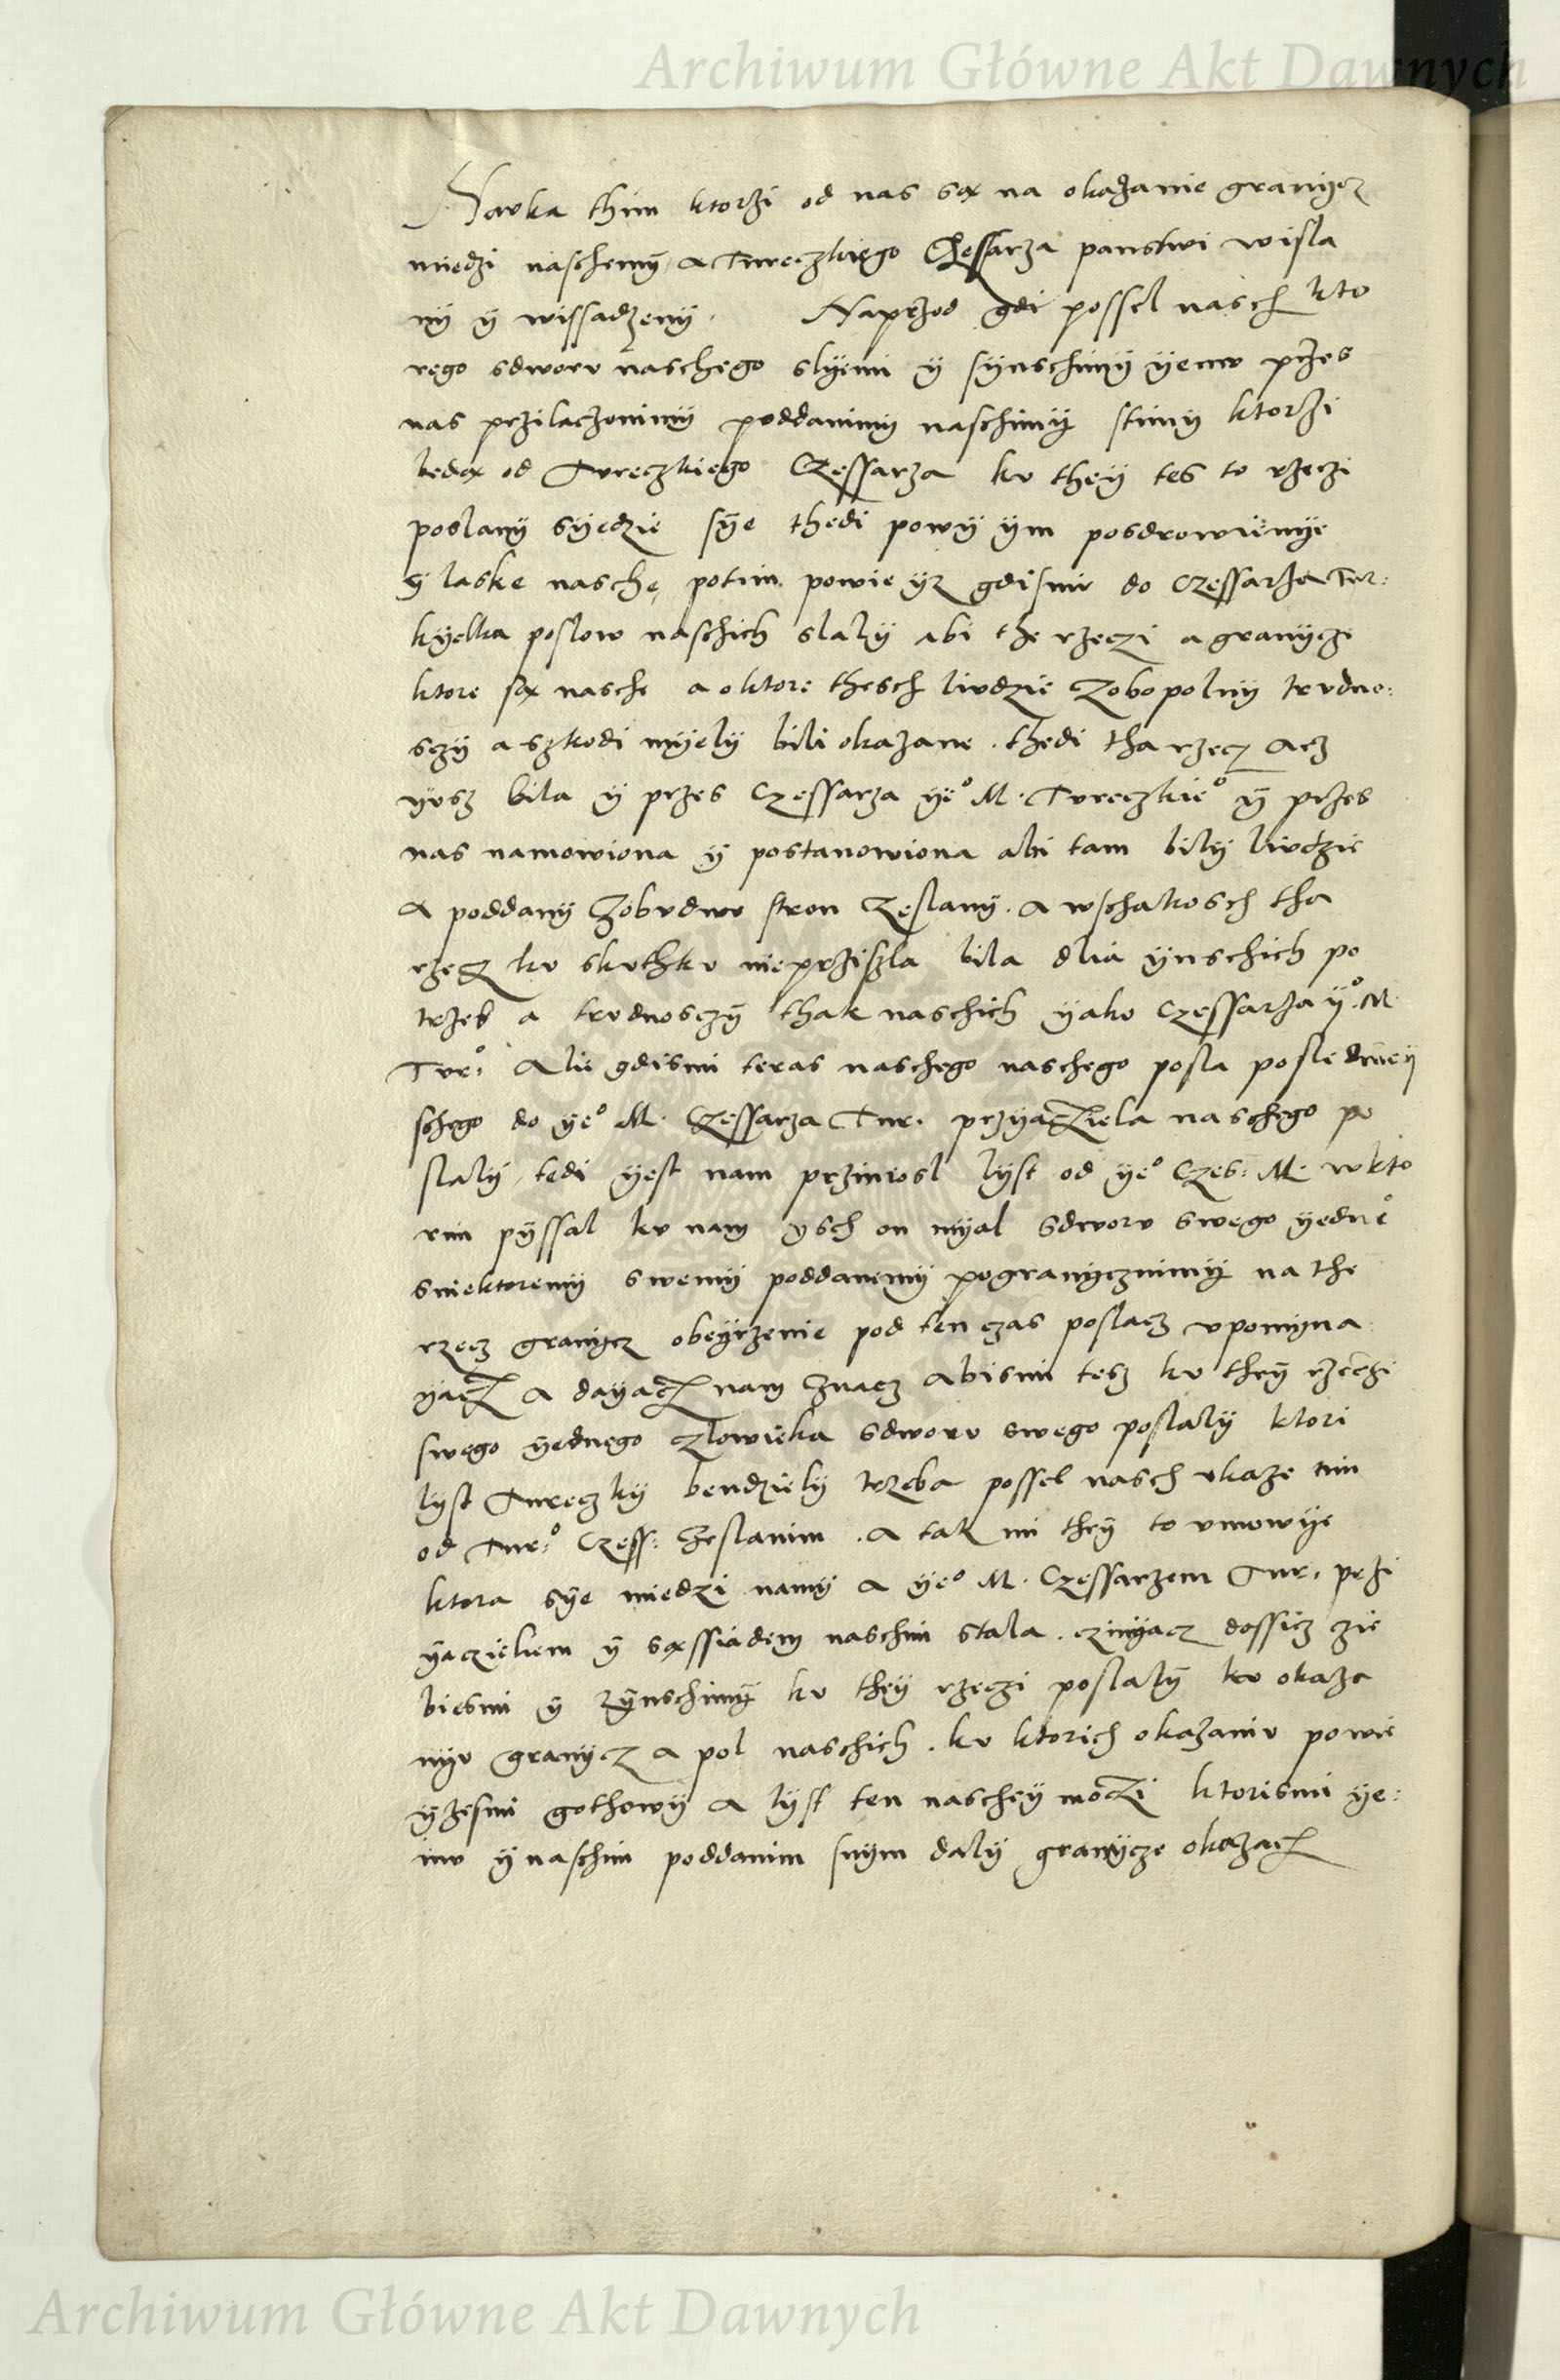 Archiwum Główne Akt Dawnych
Nauka thim ktorzi od nas są na okazanie granycz
miedzi naschemÿ a Tureczkiego Czessarza panstwi wisla
nÿ ÿ wissadzenÿ. Naprzod gdi possel nasch kto
rego sdworu naschego slyemi ÿ synschimÿ yemu przes
nas przilaczonimÿ poddanimÿ naschimÿ stimÿ ktorzi
bedą od Tureczkiego Czessarza ku theÿ tes to rzeczi
poslanÿ sÿedzie sÿe thedi powÿ ÿm posdrowienÿe
ÿ laske nasche, potim powie ÿz gdismi do Czessarza Tur:
kÿelka poslow naschich slalÿ abi the rzeczi a granÿcze
ktore są nasche a oktore thesch liudzie zobopolnÿ trudno:
sczÿ a szkodi mÿelÿ bili okazane. thedi tha rzecz acz
ÿusz bila ÿ przes Czessarza ÿe° M. Tureczkie° ÿ przes
nas namowiona ÿ postanowiona abi tam bilÿ liudzie
a poddanÿ zobudwu stron zeslanÿ. a wschakosch tha
rzecz ku skuthku nieprziszla bila dlia ÿnschich po
trzeb a trudnosczÿ thak naschich ÿako Czessarza ÿ° M.
Tur:° Alie gdismi teras naschego naschego posla posledneÿ
schego do ÿe° M. Czessarza Tur. przÿacziela naschego po
slalÿ, tedi ÿest nam prziniosl lÿst od ÿe° Czes: M. wkto
rim pÿssal ku nam ÿsch on mÿal sdworu swego ÿedne°
sniektoremÿ swemÿ poddanemÿ pogranÿcznimÿ na the
rzecz granÿcz obeÿrzenie pod ten czas poslacz upomÿna
ÿacz a daÿacz nam znacz abismi tesz ku theÿ rzeczi
swego ÿednego czlowieka sdworu swego poslalÿ ktori
lÿst Tureczkÿ bendzielÿ trzeba possel nasch ukaze tim
od Tur:° Czess: zeslanim. a tak mi theÿ to umowÿe
ktora sÿe miedzi namÿ a ÿe° M. Czessarzem Tur. przi
ÿaczieliem ÿ sąssiadem naschim stala. czinÿacz dossicz cie
biesmi ÿ zÿnschimÿ ku theÿ rzeczi poslalÿ ku okaza
nÿu granÿcz a pol naschich. ku ktorich okazaniu powie
ÿzesmi gothowÿ a lÿst ten nascheÿ moczi ktorismi ÿe:
mu ÿ naschim poddanim snÿm dalÿ granÿcze okazacz
Archiwum Główne Akt Dawnych